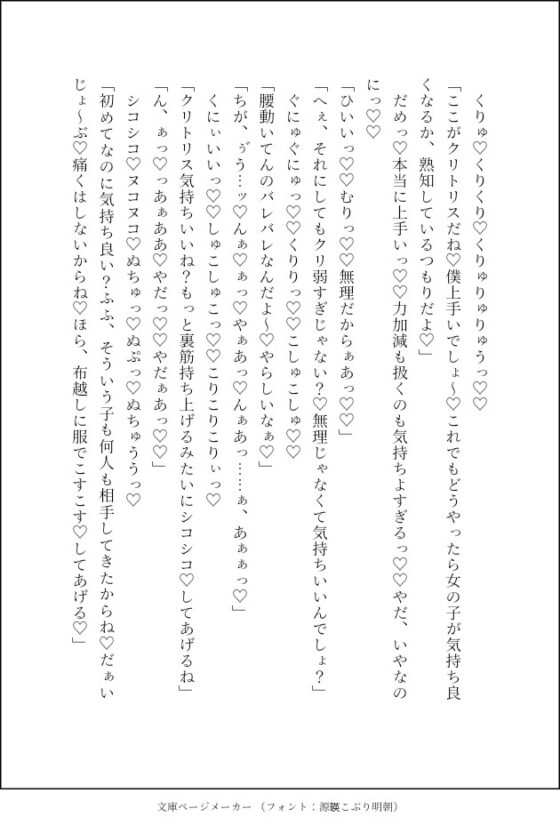 くりゅ♡くりくり♡くりゅりゅりゅうっ♡♡
「ここがクリトリスだね♡僕上手いでしょ～♡これでもどうやったら女の子が気持ち良
くなるか、熟知しているつもりだよ♡」
だめっ♡本当に上手いっ♡♡力加減も扱くのも気持ちよすぎるっ♡♡やだ、いやなの
にっ♡♡
「ひいいっ♡♡むりっ♡♡無理だからぁあっ♡♡」
「へぇ、それにしてもクリ弱すぎじゃない？♡無理じゃなくて気持ちいいんでしょ？」
ぐにゅぐにゅっ♡♡くりりっ♡♡こしゅこしゅ♡♡
「腰動いてんのバレバレなんだよ～♡やらしいなぁ♡」
「ちが、ゔう…ッ♡んぁ♡ぁっ♡やぁあっ♡んぁあっ……ぁ、あぁぁっ♡」
くにぃいいっ♡♡しゅこしゅこっ♡♡こりこりこりぃっ♡
「クリトリス気持ちいいね？もっと裏筋持ち上げるみたいにシコシコ♡してあげるね」
「ん、ぁっ♡っあぁああ♡やだっ♡♡やだぁあっ♡♡」
シコシコ♡ヌコヌコ♡ぬちゅっ♡ぬぷっ♡ぬちゅううっ♡
「初めてなのに気持ち良い？ふふ、そういう子も何人も相手してきたからね♡だぁい
じょ～ぶ♡痛くはしないからね♡ほら、布越しに服でこすこす♡してあげる♡」
文庫ページメーカー（フォント：源暎こぶり明朝）